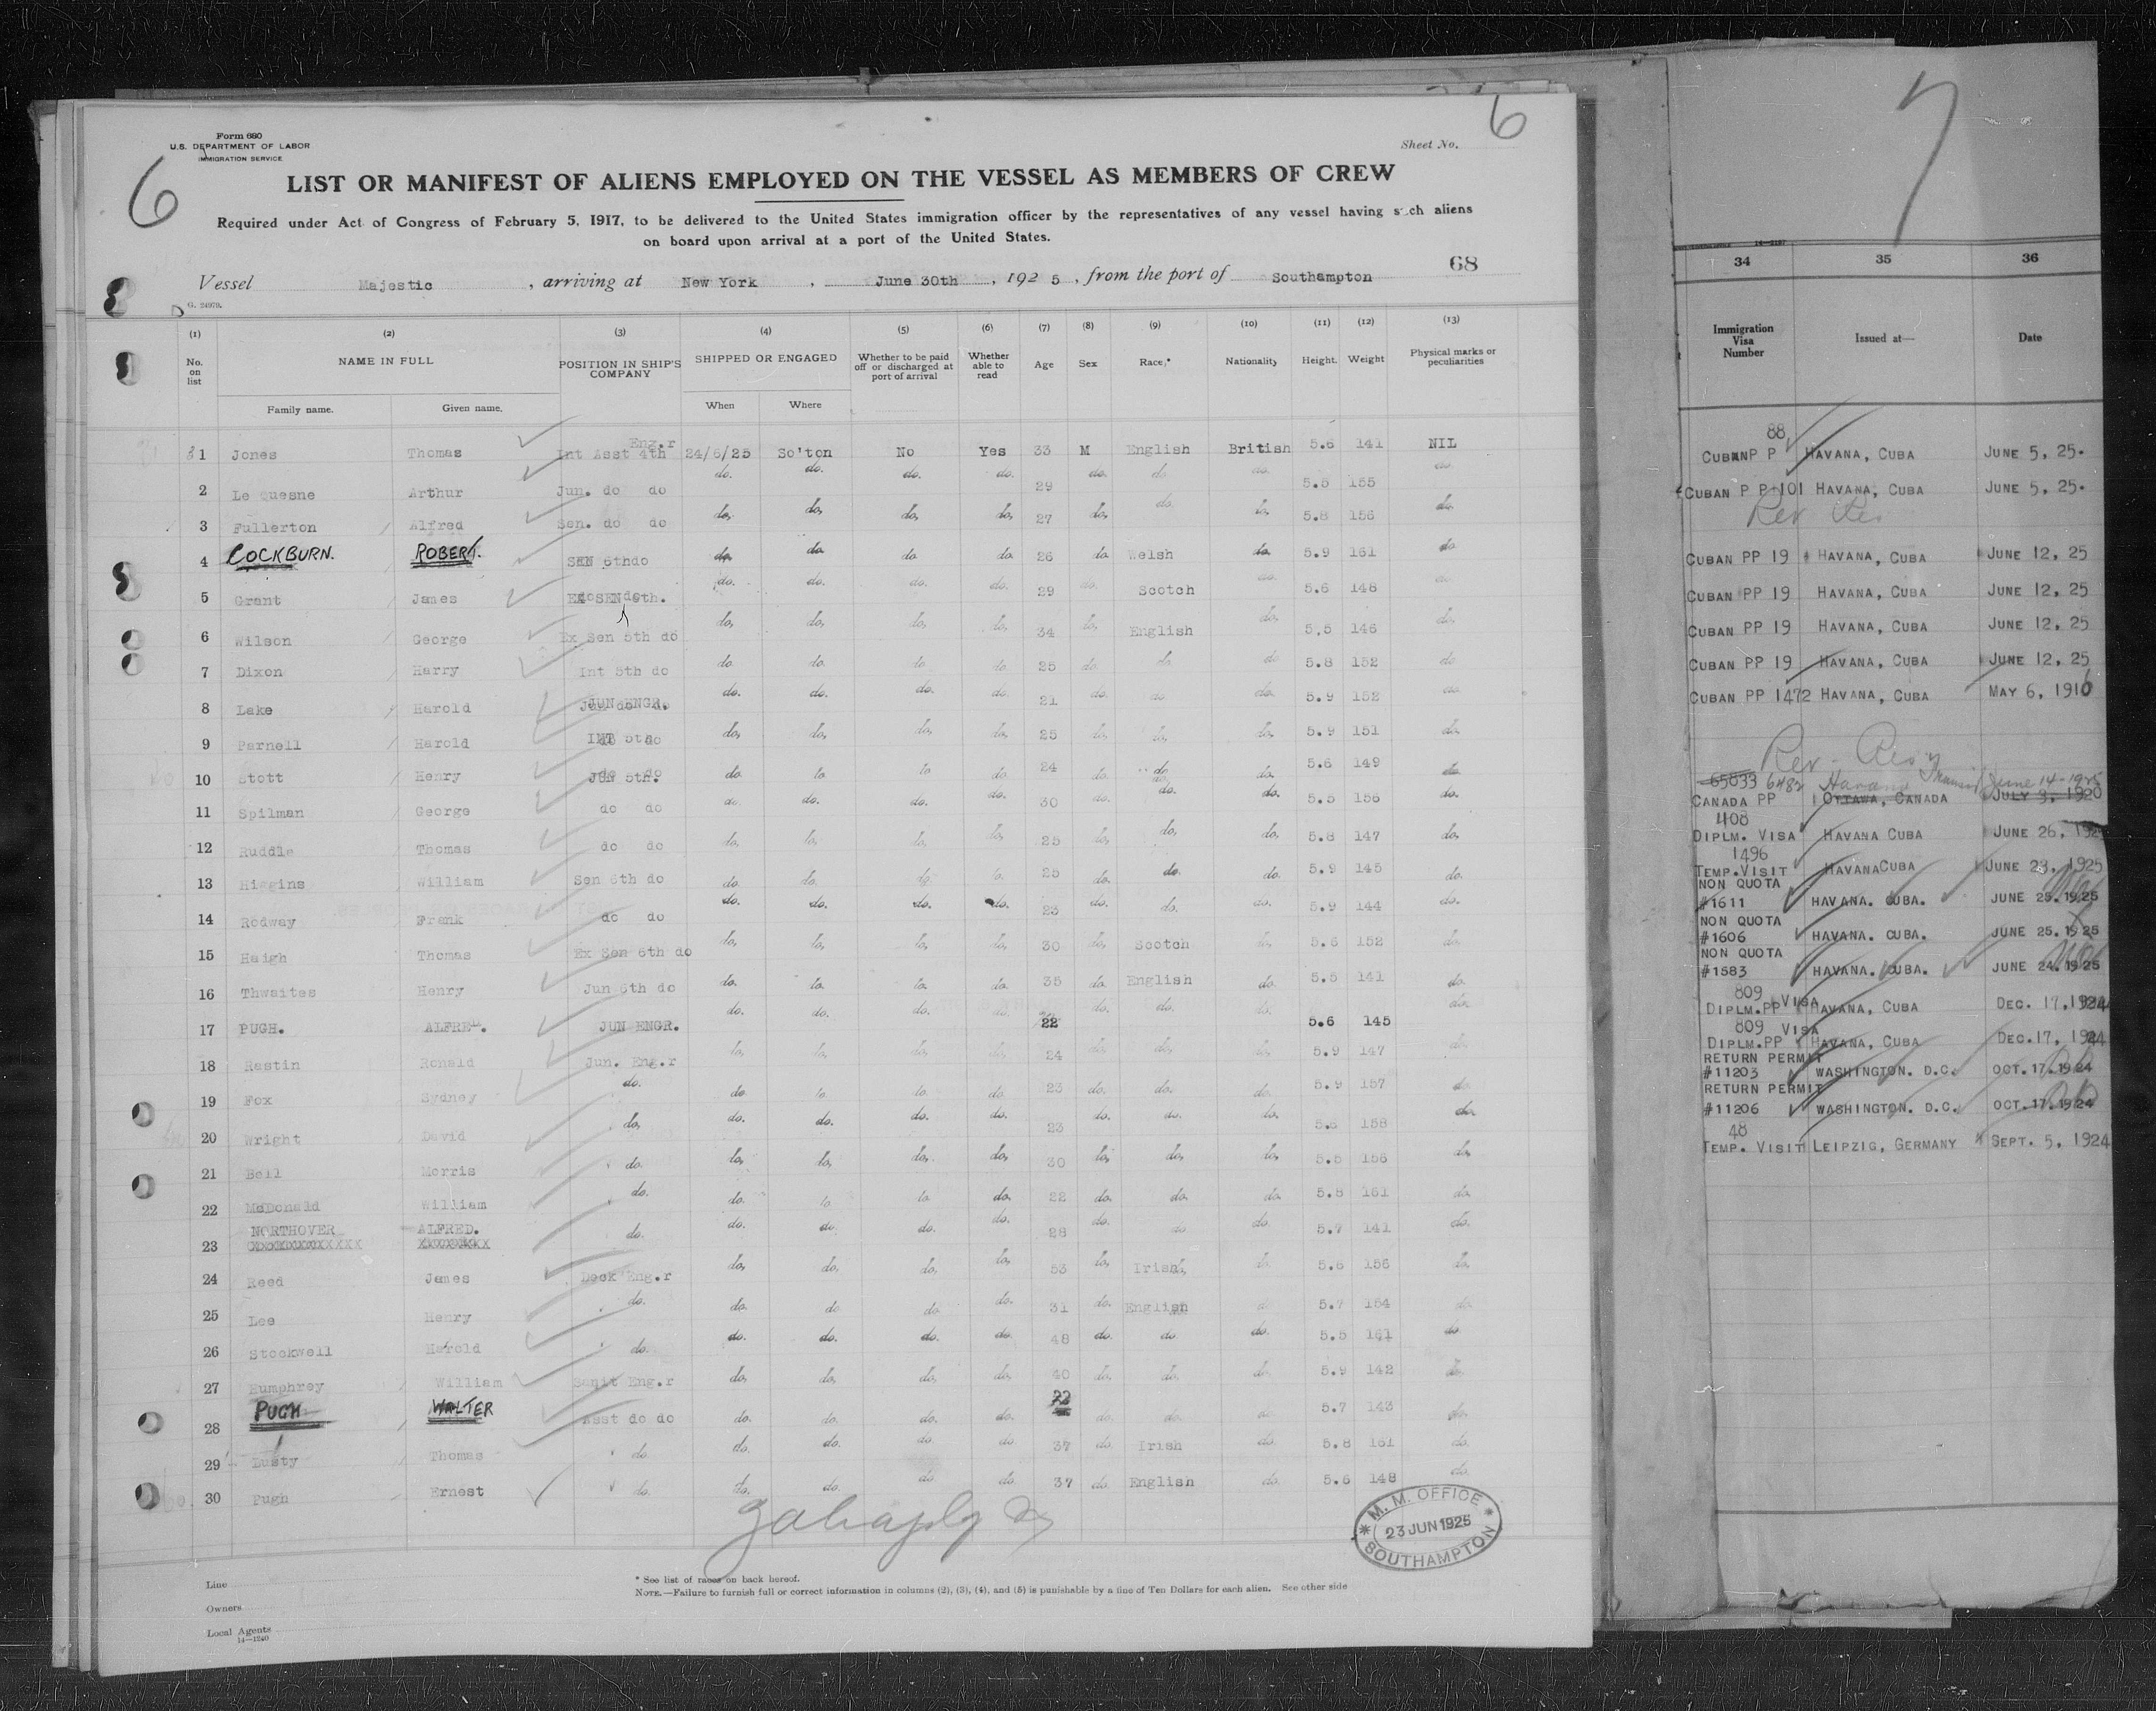 6
Form 680
U.S. DEPARTMENT OF LABOR
IMMIGRATION SERVICE
Sheet No. 6
LIST OR MANIFEST OF ALIENS EMPLOYED ON THE VESSEL AS MEMBERS OF CREW
Required under Act of Congress of February 5, 1917, to be delivered to the United States immigration officer by the representatives of any vessel having such aliens
on board upon arrival at a port of the United States.
68
Vessel Majestic, arriving at New York, June 30th, 1925, from the port of Southampton
G. 24979.
(1) (2) (3) (4) (5) (6) (7) (8) (9) (10) (11) (12) (13)
No. on list NAME IN FULL POSITION IN SHIP'S COMPANY SHIPPED OR ENGAGED Whether to be paid off or discharged at port of arrival Whether able to read Age Sex Race,* Nationality Height. Weight Physical marks or peculiarities
Family name. Given name. When Where
1 Jones Thomas Int Asst 4th Eng.r 24/6/25 So'ton No Yes 33 M English British 5.6 141 NIL
2 Le Quesne Arthur Jun. do do do. do. do. do. 29 do. do do. 5.5 155 do.
3 Fullerton Alfred Sen. do do do, do, do, do, 27 do, do. do, 5.8 156 do.
4 COCKBURN. ROBERT. SEN 6th do do do do do 26 do Welsh do. 5.9 161 do
5 Grant James Ex SEN 6th. do. do. do. do. 29 do. Scotch do. 5.6 148 do.
6 Wilson George Ex Sen 5th do do, do, do, do, 34 do, English do, 5.5 146 do,
7 Dixon Harry Int 5th do do do. do do 25 do. do. do 5.8 152 do
8 Lake Harold JUN ENGR. do. do. do. do. 21 do. do do. 5.9 152 do.
9 Parnell Harold INT 5th do, do, do, do, 25 do, do, do, 5.9 151 do,
10 Stott Henry JUN 5th. do do do do. 24 do. do do. 5.6 149 do
11 Spilman George do do do. do. do. do. 30 do. do. do. 5.5 156 do.
12 Ruddle Thomas do do do, do, do, do, 25 do, do, do, 5.8 147 do,
13 Higgins William Sen 6th do do do. do do. 25 do. do. do. 5.9 145 do.
14 Rodway Frank do do do. do. do. do. 23 do. do. do. 5.9 144 do.
15 Haigh Thomas Ex Sen 6th do do, do, do, do, 30 do, Scotch do, 5.6 152 do,
16 Thwaites Henry Jun 6th do do. do. do. do. 35 do. English do. 5.5 141 do.
17 PUGH. ALFRED. JUN ENGR. do. do. do. do. 22 do. do. do. 5.6 145 do.
18 Rastin Ronald Jun. Eng.r do, do, do, do, 24 do, do, do, 5.9 147 do,
19 Fox Sydney do. do do do do. 23 do. do. do. 5.9 157 do.
20 Wright David do, do. do. do. do. 23 do. do. do. 5.6 158 do.
21 Bell Morris do. do, do, do, do, 30 do, do, do, 5.5 156 do,
22 McDonald William do. do. do do do. 22 do. do. do. 5.8 161 do.
23 NORTHOVER ALFRED. do. do. do. do. do. 28 do. do do. 5.7 141 do.
24 Reed James Deck Eng.r do, do, do, do, 53 do, Irish do. 5.6 156 do,
25 Lee Henry do. do. do do do. 31 do. English do. 5.7 154 do.
26 Stockwell Harold do. do. do. do. do. 48 do. do. do. 5.5 141 do.
27 Humphrey William Sanit Eng.r do, do, do, do, 40 do, do, do, 5.9 142 do,
28 PUGH WALTER Asst do do do. do. do. do. 22 do. do. do 5.7 143 do.
29 Lusty Thomas do do. do. do. do. 37 do. Irish do. 5.8 161 do.
30 Pugh Ernest do. do. do. do do. 37 do English do. 5.6 148 do.
M. M. OFFICE
23 JUN 1925
SOUTHAMPTON
* See list of races on back hereof.
NOTE.—Failure to furnish full or correct information in columns (2), (3), (4), and (5) is punishable by a fine of Ten Dollars for each alien. See other side
Line
Owners
Local Agents
14—1240
7
34 35 36
Immigration Visa Number Issued at— Date
88
CUBAN P P HAVANA, CUBA JUNE 5, 25.
CUBAN P P 101 HAVANA, CUBA JUNE 5, 25.
CUBAN PP 19 HAVANA, CUBA JUNE 12, 25
CUBAN PP 19 HAVANA, CUBA JUNE 12, 25
CUBAN PP 19 HAVANA, CUBA JUNE 12, 25
CUBAN PP 19 HAVANA, CUBA JUNE 12, 25
CUBAN PP 1472 HAVANA, CUBA MAY 6, 1916
65833 6482 Havana June 14-1925
CANADA PP OTTAWA, CANADA JULY 3, 1920
408
DIPLM. VISA HAVANA CUBA JUNE 26, 1925
1496
TEMP. VISIT HAVANA CUBA JUNE 23, 1925
NON QUOTA
#1611 HAVANA. CUBA. JUNE 25. 1925
NON QUOTA
#1606 HAVANA. CUBA. JUNE 25. 1925
NON QUOTA
#1583 HAVANA. CUBA. JUNE 24. 1925
809 VISA
DIPLM. PP HAVANA, CUBA DEC. 17, 1924
809 VISA
DIPLM. PP HAVANA, CUBA DEC. 17, 1924
RETURN PERMIT
#11203 WASHINGTON. D.C. OCT. 17. 1924
RETURN PERMIT
#11206 WASHINGTON. D.C. OCT. 17. 1924
48
TEMP. VISIT LEIPZIG, GERMANY SEPT. 5, 1924